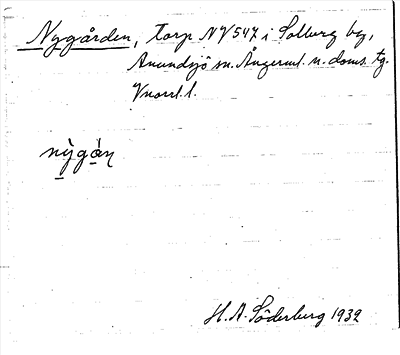 Nygården, torp NV547 i Solberg by,
Anundsjö sn. Ångerml. n. doms. tg.
Vnorrl. l.
nỳgá̠ɳ
H. A. Söderberg 1932